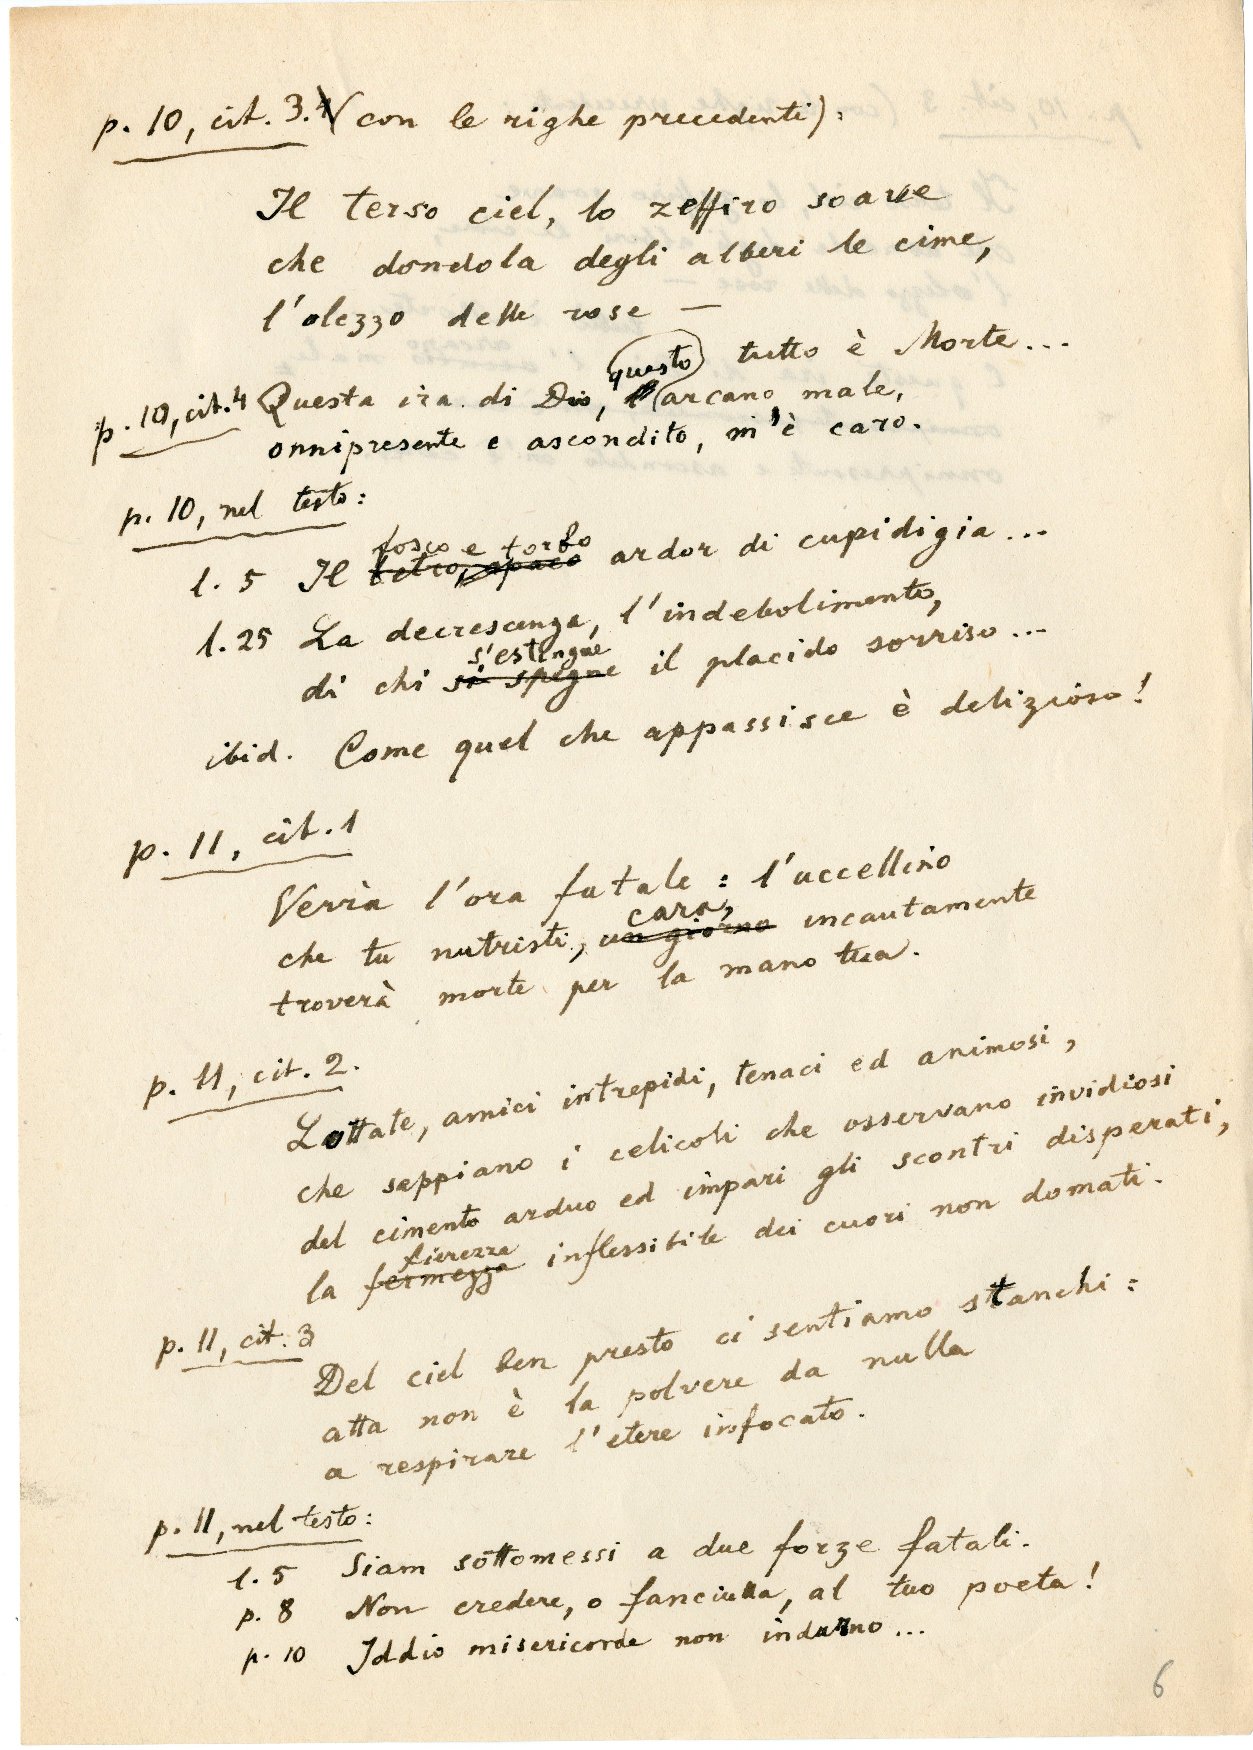 p. 10, cit. 3. (con le righe precedenti):
Il terso ciel, lo zeffiro soave
che dondola degli alberi le cime,
l'olezzo delle rose —
questo tutto è Morte...
p. 10, cit. 4 Questa ira di Dio, arcano male,
onnipresente e ascondito, m'è caro.
p. 10, nel testo:
fosco e torbo
l. 5 Il tetro, opaco ardor di cupidigia...
l. 25 La decrescenza, l'indebolimento,
s'estingue
di chi si spegne il placido sorriso...
ibid. Come quel che appassisce è delizioso!
p. 11, cit. 1
Verrà l'ora fatale: l'uccellino
cara,
che tu nutristi, un giorno incautamente
troverà morte per la mano tua.
p. 11, cit. 2.
Lottate, amici intrepidi, tenaci ed animosi,
che seppiano i celicoli che osservano invidiosi
del cimento arduo ed impari gli scontri disperati,
fierezza
la fermezza inflessibile dei cuori non domati.
p. 11, cit. 3
Del ciel ben presto ci sentiamo stanchi:
atta non è la polvere da nulla
a respirare l'etere infocato.
p. 11, nel testo:
l. 5 Siam sottomessi a due forze fatali.
p. 8 Non credere, o fanciulla, al tuo poeta!
p. 10 Iddio misericorde non indarno...
6